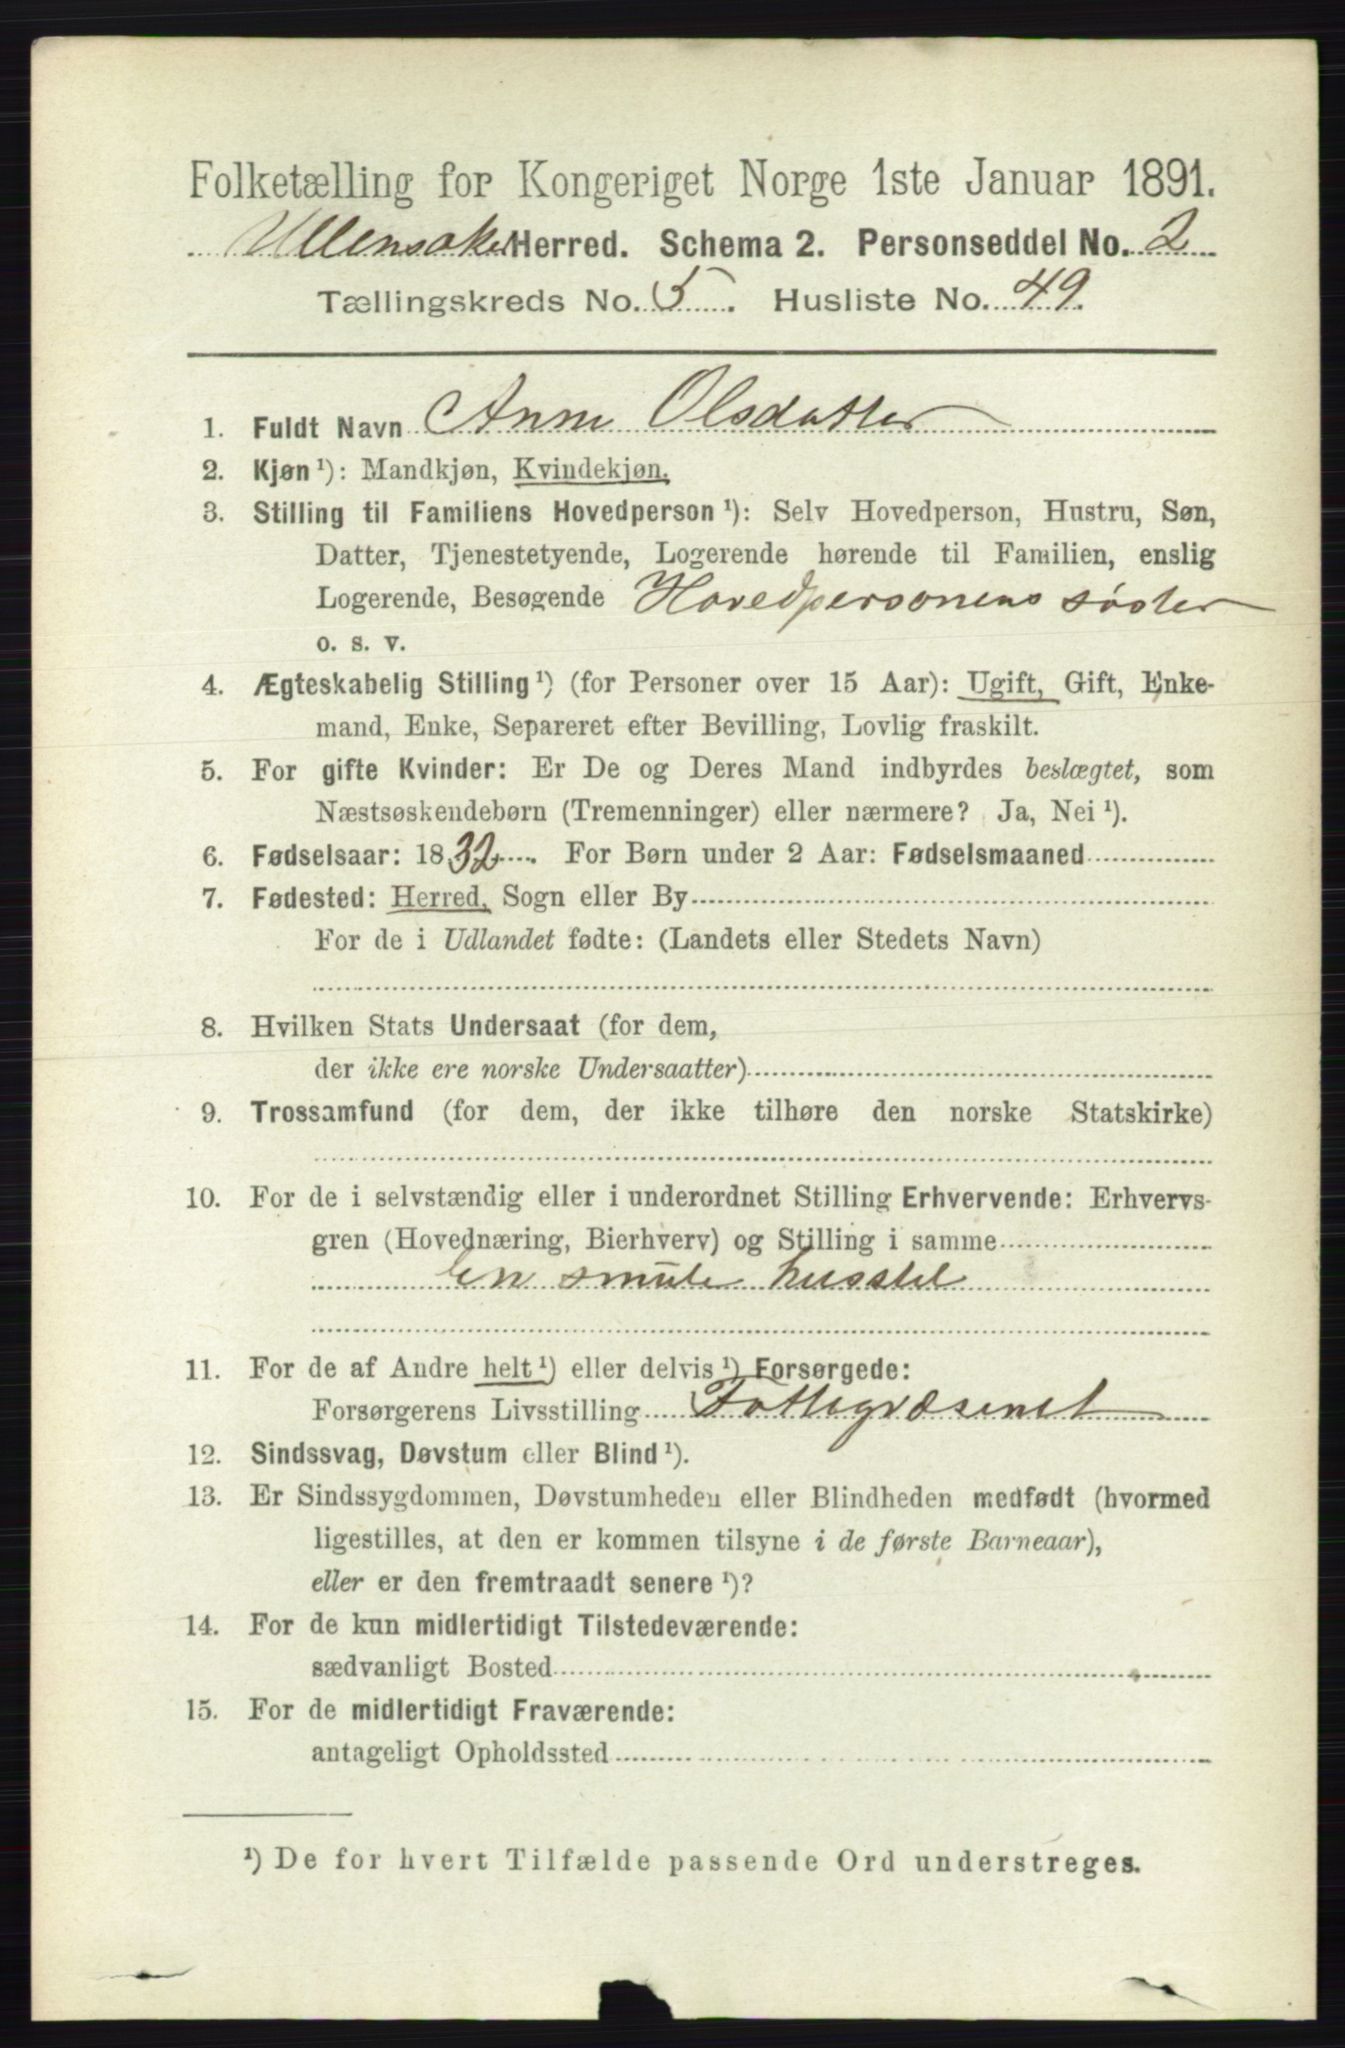 Folketælling for Kongeriget Norge 1ste Januar 1891.
Ullensaker Herred. Schema 2. Personseddel No. 2
Tællingskreds No. 5. Husliste No. 49.
1. Fuldt Navn Anne Olsdatter
2. Kjøn ¹): Mandkjøn, Kvindekjøn.
3. Stilling til Familiens Hovedperson ¹): Selv Hovedperson, Hustru, Søn,
Datter, Tjenestetyende, Logerende hørende til Familien, enslig
Logerende, Besøgende Hovedpersonens søster
o. s. v.
4. Ægteskabelig Stilling ¹) (for Personer over 15 Aar): Ugift, Gift, Enke-
mand, Enke, Separeret efter Bevilling, Lovlig fraskilt.
5. For gifte Kvinder: Er De og Deres Mand indbyrdes beslægtet, som
Næstsøskendebørn (Tremenninger) eller nærmere? Ja, Nei ¹).
6. Fødselsaar: 1832. For Børn under 2 Aar: Fødselsmaaned
7. Fødested: Herred, Sogn eller By
For de i Udlandet fødte: (Landets eller Stedets Navn)
8. Hvilken Stats Undersaat (for dem,
der ikke ere norske Undersaatter)
9. Trossamfund (for dem, der ikke tilhøre den norske Statskirke)
10. For de i selvstændig eller i underordnet Stilling Erhvervende: Erhvervs-
gren (Hovednæring, Bierhverv) og Stilling i samme
En smule husstel
11. For de af Andre helt ¹) eller delvis ¹) Forsørgede:
Forsørgerens Livsstilling Fattigvæsenet
12. Sindssvag, Døvstum eller Blind ¹).
13. Er Sindssygdommen, Døvstumheden eller Blindheden medfødt (hvormed
ligestilles, at den er kommen tilsyne i de første Barneaar),
eller er den fremtraadt senere ¹)?
14. For de kun midlertidigt Tilstedeværende:
sædvanligt Bosted
15. For de midlertidigt Fraværende:
antageligt Opholdssted
¹) De for hvert Tilfælde passende Ord understreges.